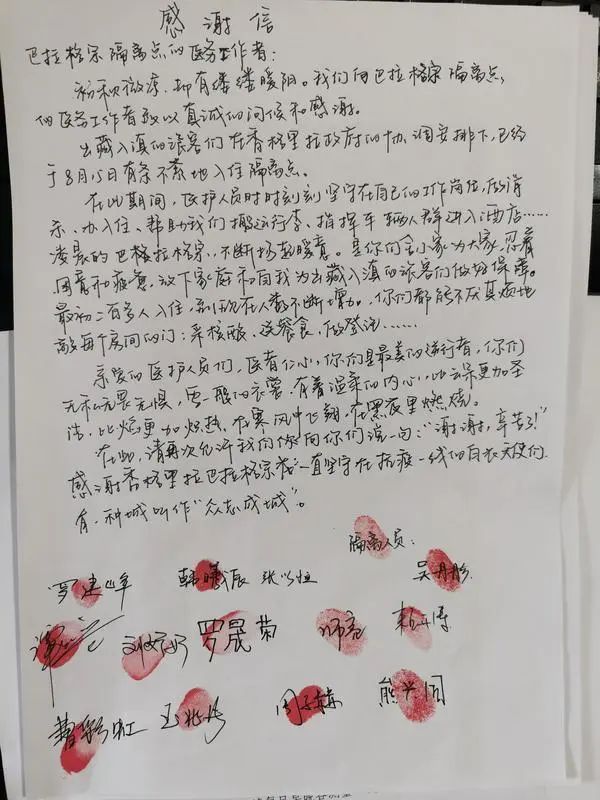 感谢信
巴拉格宗隔离点的医务工作者：
初秋微凉，却有缕缕暖阳。我们向巴拉格宗隔离点
的医务工作者致以真诚的问候和感谢。
出藏入滇的旅客们在香格里拉政府的协调安排下，已经
于8月15日有条不紊地入住隔离点。
在此期间，医护人员时时刻刻坚守在自己的工作岗位，做消
杀、办入住、帮助我们搬运行李、指挥车辆人群进入酒店……
凌晨的巴格拉格宗，不断扬起暖意。是你们舍小家为大家，忍着
困意和疲惫，放下家庭和自我为出藏入滇的旅客们做好保障。
最初二百多人入住，到现在人数不断增加。你们都能不厌其烦地
敲每个房间的门：采核酸、送餐食、做登记……
亲爱的医护人员们，医者仁心，你们是最美的逆行者，你们
无私无畏无惧，雪一般的衣裳，有着温柔的内心，比云朵更加圣
洁，比焰更加炽热，在寒风中飞翔，在黑夜里燃烧。
在此，请再次允许我们向你们说一句："谢谢，辛苦了！"
感谢香格里拉巴拉格宗 一直坚守在抗疫一线的白衣天使们.
有一种城叫作"众志成城"。
隔离人员：
罗建 韩曦辰 张 恒 吴丹彤
刘婷婷 罗晟荣 师 博
曹彩虹 王 周 熊